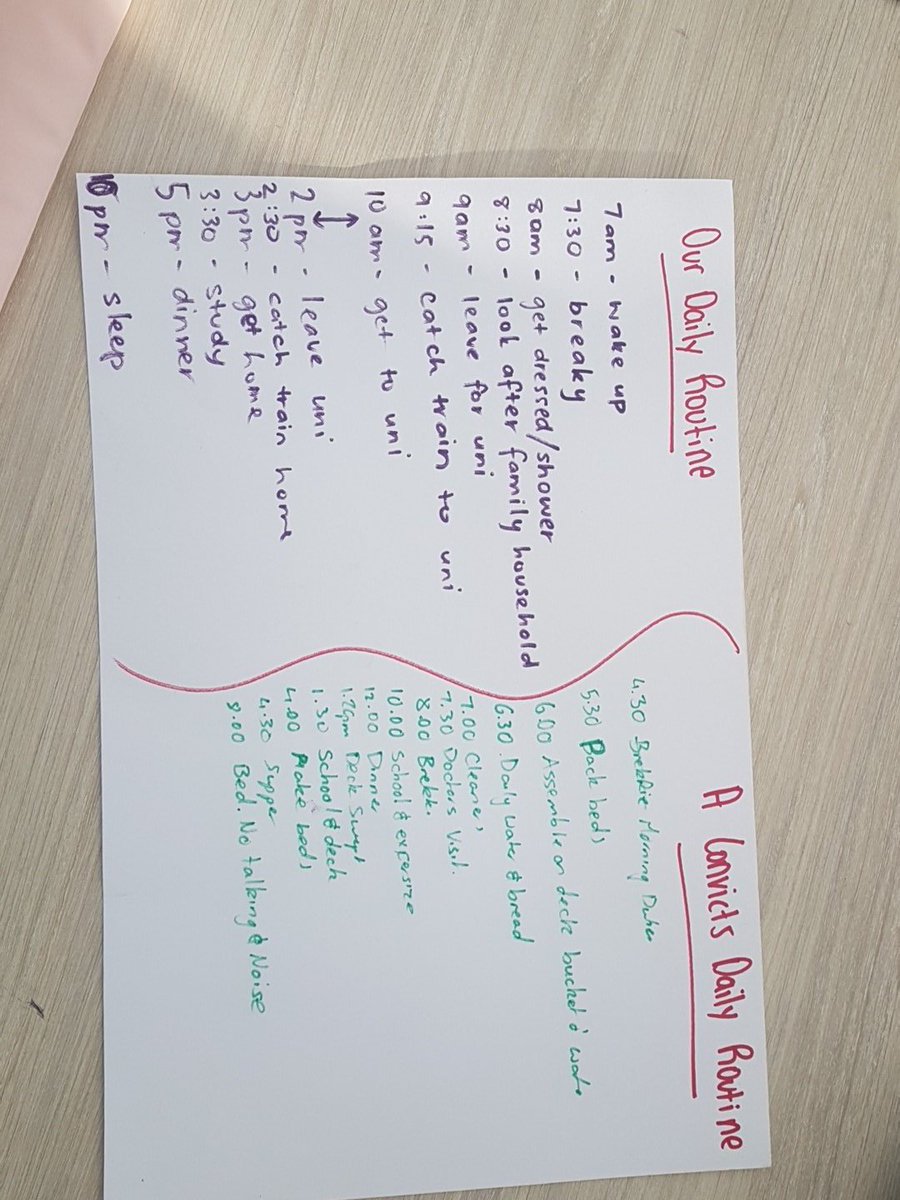 Our Daily Routine
7am - wake up
7:30 - breaky
8am - get dressed/shower
8:30 - look after family household
9am - leave for uni
9:15 - catch train to uni
10 am - get to uni
2 pm - leave uni
2:30 - catch train home
3 pm - get home
3:30 - study
5 pm - dinner
pm - sleep
A Convicts Daily Routine
4.30 Brekkie Morning
5.30 Pack beds
6.00 Assemble on deck bucket o'
6.30. Daily water & bread
7.00
7.30 Doctors Visit.
8.00 Brekk.
10.00 School & excersize
12.00 Dinner
Deck Swept
1.30 School & deck
4.00 Make beds
4.30 Supper
8.00 Bed. No talking & Noise